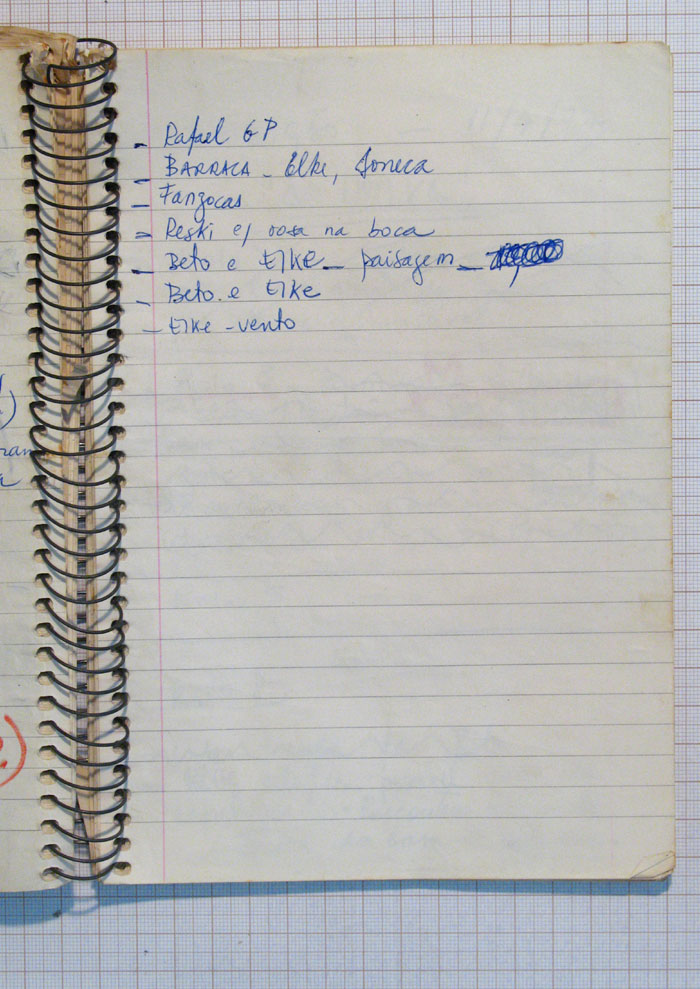 - Rafael GP
- BARRACA - Elke, Soneca
- Fanzocas
- Reski c/ rosa na boca
- Beto e Elke - paisagem -
- Beto e Elke
- Elke - vento
ran